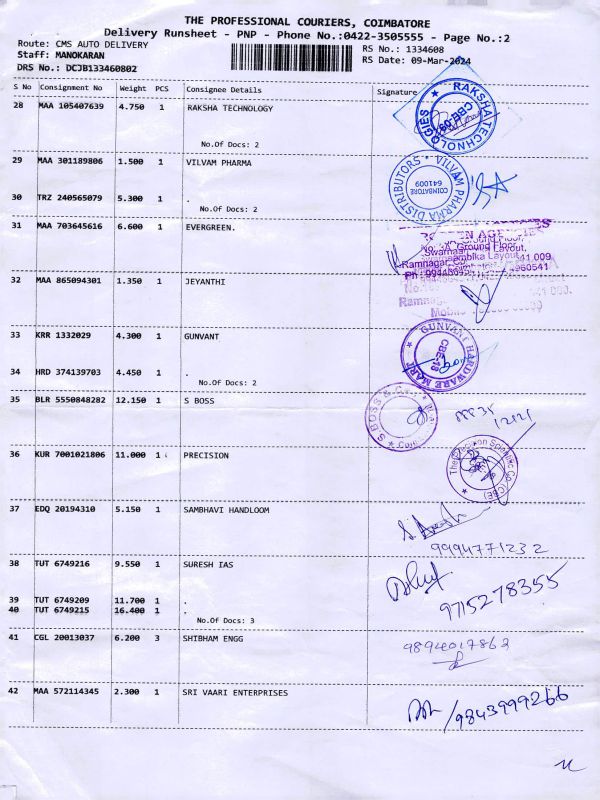 THE PROFESSIONAL COURIERS, COIMBATORE
Delivery Runsheet - PNP - Phone No.:0422-3505555 - Page No.:2
Route: CMS AUTO DELIVERY
RS No.: 1334608
Staff: MANOKARAN
RS Date: 09-Mar-2024
DRS No.: DCJB133460802
S No Consignment No Weight PCS Consignee Details Signature
28 MAA 105407639 4.750 1 RAKSHA TECHNOLOGY
RAKSHA TECHNOLOGIES
CBE-09
No.Of Docs: 2
29 MAA 301189806 1.500 1 VILVAM PHARMA
VILVAM PHARMA DISTRIBUTORS
COIMBATORE
641009
30 TRZ 240565079 5.300 1 .
No.Of Docs: 2
31 MAA 703645616 6.600 1 EVERGREEN.
Ground Floor
Layout,
Ramnagar,
32 MAA 865094301 1.350 1 JEYANTHI
33 KRR 1332029 4.300 1 GUNVANT
GUNVANT HARDWARE MART
CBE-18
34 HRD 374139703 4.450 1 .
No.Of Docs: 2
35 BLR 5550848282 12.150 1 S BOSS
S.BOSS & C
36 KUR 7001021806 11.000 1 PRECISION
The Precision Scientific Co. (CBE)
37 EDQ 20194310 5.150 1 SAMBHAVI HANDLOOM
9994771232
38 TUT 6749216 9.550 1 SURESH IAS
9715278355
39 TUT 6749209 11.700 1 .
40 TUT 6749215 16.400 1 .
No.Of Docs: 3
41 CGL 20013037 6.200 3 SHIBHAM ENGG
9894017863
42 MAA 572114345 2.300 1 SRI VAARI ENTERPRISES
9843999266